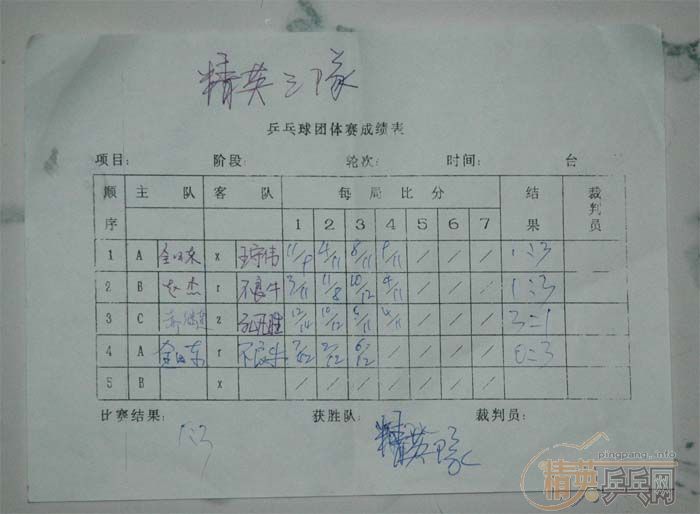 精英三队
乒乓球团体赛成绩表
项目: 阶段: 轮次: 时间: 台
顺序 主 队 客 队 每局比分 结果 裁判员
1 2 3 4 5 6 7
1 A x 王守伟 11/9 4/11 8/11 9/11 / / / 1:3
2 B 赵杰 r 不良牛 3/11 11/8 10/12 4/11 / / / 1:3
3 C z 12/14 10/12 4/11 / / / 3:1
4 A r 不良牛 / / / / 0:3
5 B x / / / / / / /
比赛结果: 1:3 获胜队: 精英队 裁判员:
pingpang.info
精英乒乓网